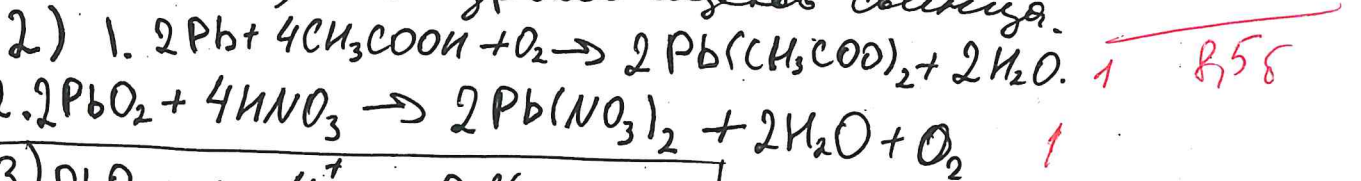 свинца.
2) 1. 2Pb + 4CH₃COOH + O₂ → 2Pb(CH₃COO)₂ + 2H₂O. 1 8,5б
2. 2PbO₂ + 4HNO₃ → 2Pb(NO₃)₂ + 2H₂O + O₂ 1
3)